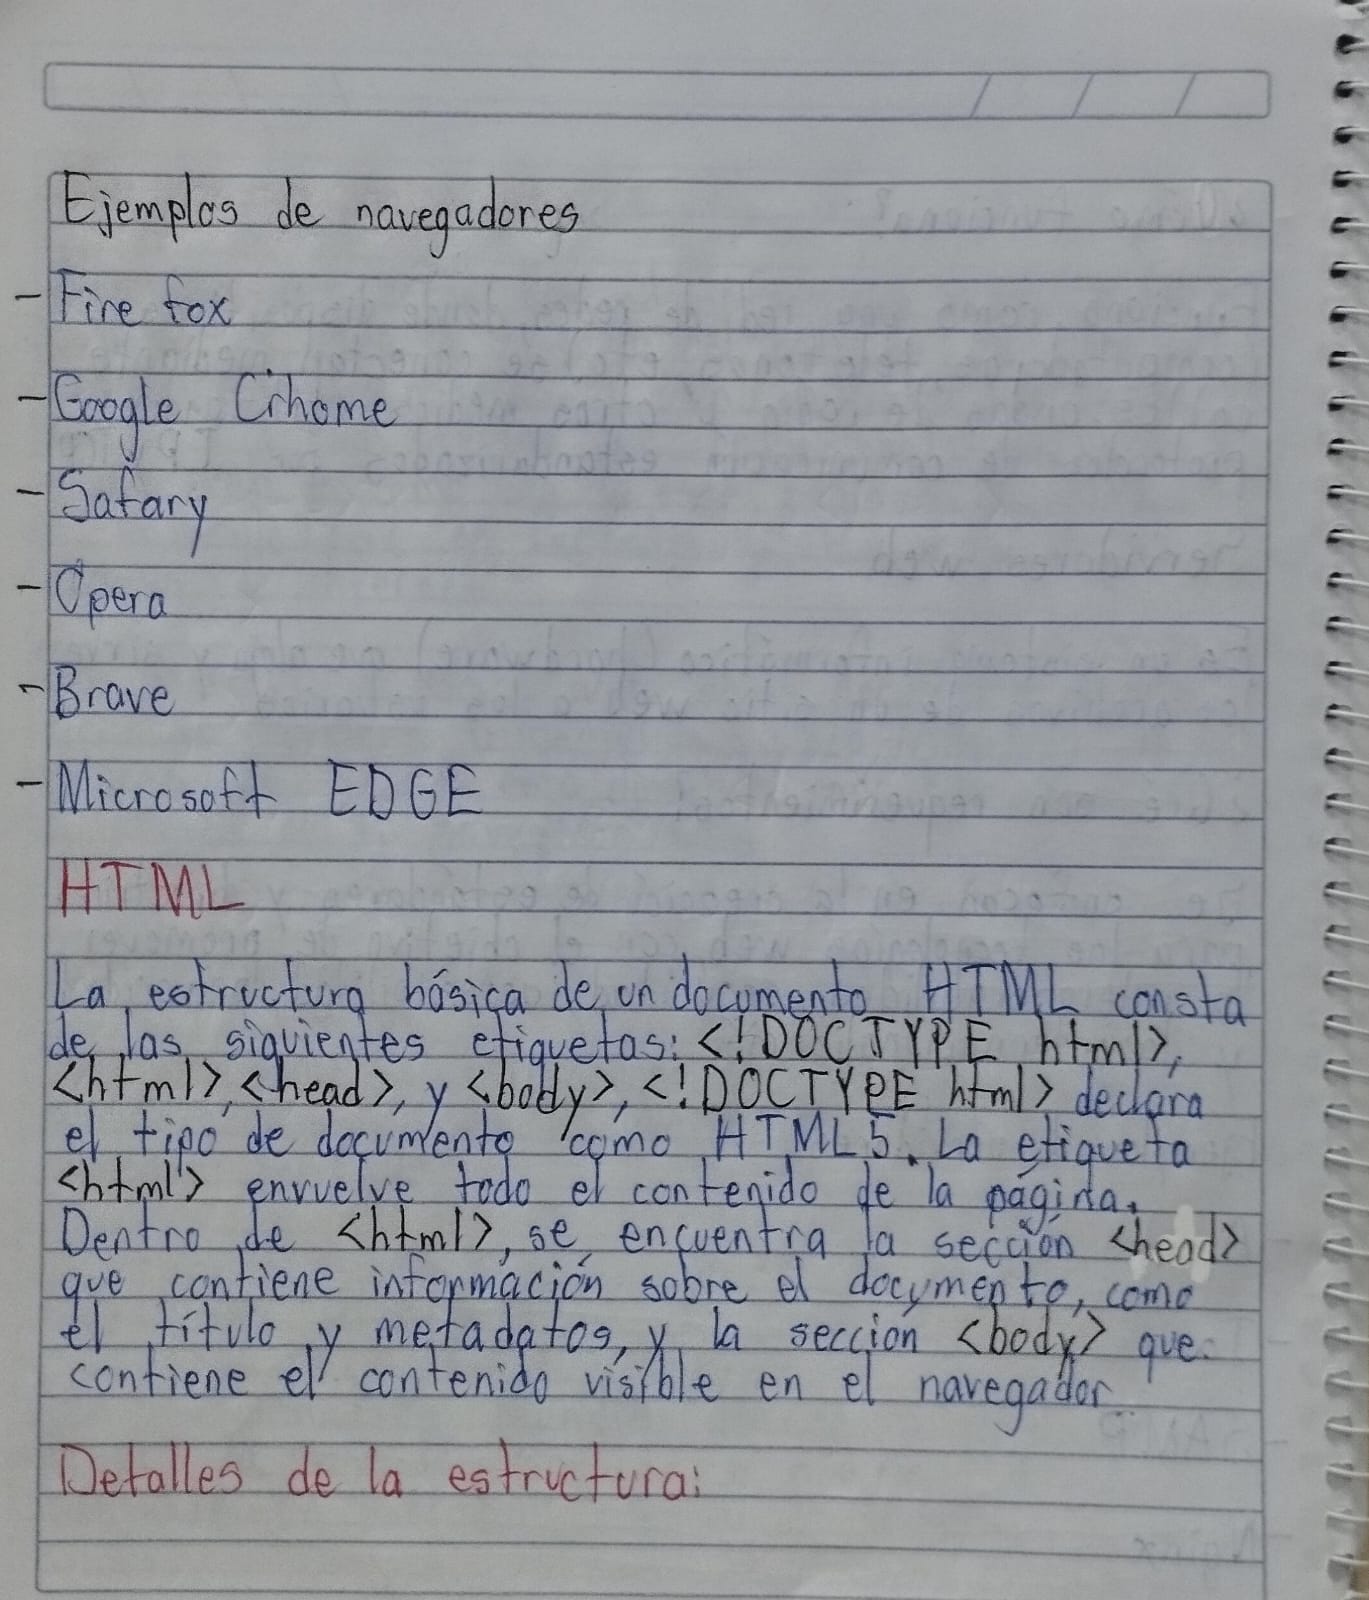 Ejemplos de navegadores
- Fire fox
- Google Crhome
- Safary
- Opera
- Brave
- Microsoft EDGE
HTML
La estructura básica de un documento HTML consta
de las siguientes etiquetas: <!DOCTYPE html>,
<html>, <head>, y <body>, <!DOCTYPE html> declara
el tipo de documento como HTML5. La etiqueta
<html> envuelve todo el contenido de la página.
Dentro de <html>, se encuentra la sección <head>
que contiene información sobre el documento, como
el título y metadatos, y la sección <body> que
contiene el contenido visible en el navegador
Detalles de la estructura: